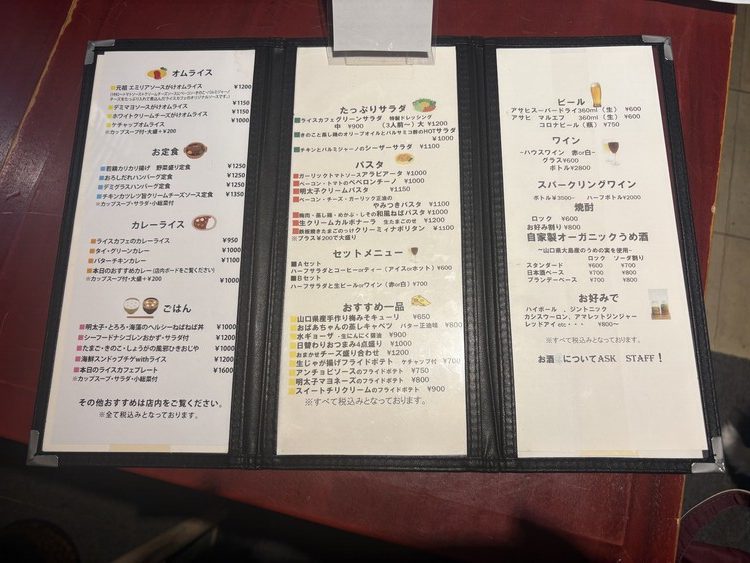 オムライス
元祖 エミリアソースがけオムライス ¥1200
デミマヨソースがけオムライス ¥1150
ホワイトクリームチーズがけオムライス ¥1150
ケチャップオムライス ¥1000
*カップスープ付・大盛+¥200
お定食
若鶏カリカリ揚げ 野菜盛り定食 ¥1250
おろしだれハンバーグ定食 ¥1250
デミグラスハンバーグ定食 ¥1250
チキンカツレツ旨クリームチーズソース定食 ¥1350
*カップスープ・サラダ・小総菜付
カレーライス
ライスカフェのカレーライス ¥950
タイ・グリーンカレー ¥1000
バターチキンカレー ¥1100
本日のおすすめカレー(店内ボードをご覧ください)
*カップスープ付・大盛+¥200
ごはん
明太子・とろろ・海藻のヘルシーねばねば丼 ¥1000
シーフードナシゴレンおかず・サラダ付 ¥1200
たまご・きのこ・しょうがの風邪ひきおじや ¥1000
海鮮スンドゥブチゲwithライス ¥1200
本日のライスカフェプレート ¥1600
*カップスープ・サラダ・小総菜付
その他おすすめは店内をご覧ください。
※全て税込みとなっております。
たっぷりサラダ
ライスカフェグリーンサラダ 特製ドレッシング
中 ¥900 (3人前～) 大 ¥1200
きのこと蒸し鶏のオリーブオイルとバルサミコ酢のHOTサラダ
¥1000
チキンとパルミジャーノのシーザーサラダ ¥1100
パスタ
ガーリックトマトソースアラビアータ ¥1000
ベーコン・トマトのペペロンチーノ ¥1000
明太子クリームパスタ ¥1150
ベーコン・チーズ・ガーリック正油の
やみつきパスタ ¥1100
梅肉・蒸し鶏・めかぶ・しその和風ねばパスタ ¥1000
生クリームカルボナーラ 生たまごのせ ¥1200
鉄板焼きたまごのっけクリーミィナポリタン ¥1100
*プラス¥200で大盛り
セットメニュー
Aセット
ハーフサラダとコーヒーorティー(アイスorホット)¥600
Bセット
ハーフサラダと生ビールorワイン(赤or白)¥700
おすすめ一品
山口県産手作り梅みそキューリ ¥650
おばあちゃんの蒸しキャベツ バター正油味 ¥800
水ギョーザ・生にんにく醤油 ¥900
日替わりおつまみ4点盛り ¥1000
おまかせチーズ盛り合わせ ¥1200
生じゃが揚げフライドポテト ケチャップ付 ¥700
アンチョビソースのフライドポテト ¥750
明太子マヨネーズのフライドポテト ¥800
スイートチリクリームのフライドポテト ¥900
※すべて税込みとなっております。
ビール
アサヒスーパードライ360ml(生) ¥600
アサヒ マルエフ 360ml(生) ¥600
コロナビール(瓶) ¥750
ワイン
-ハウスワイン 赤or白-
グラス¥600
ボトル¥2800
スパークリングワイン
ボトル¥3500- ハーフボトル¥2000
焼酎
ロック ¥600
お好み割り ¥800
自家製オーガニックうめ酒
~山口県大島産のうめの実を使用~
ロック ソーダ割り
スタンダード ¥600 ¥700
日本酒ベース ¥700 ¥800
ブランデーベース ¥700 ¥800
お好みで
ハイボール 、ジントニック
カシスウーロン、アマレットジンジャー
レッドアイ etc・・ ¥800～
※すべて税込みとなっております。
お酒についてASK STAFF!